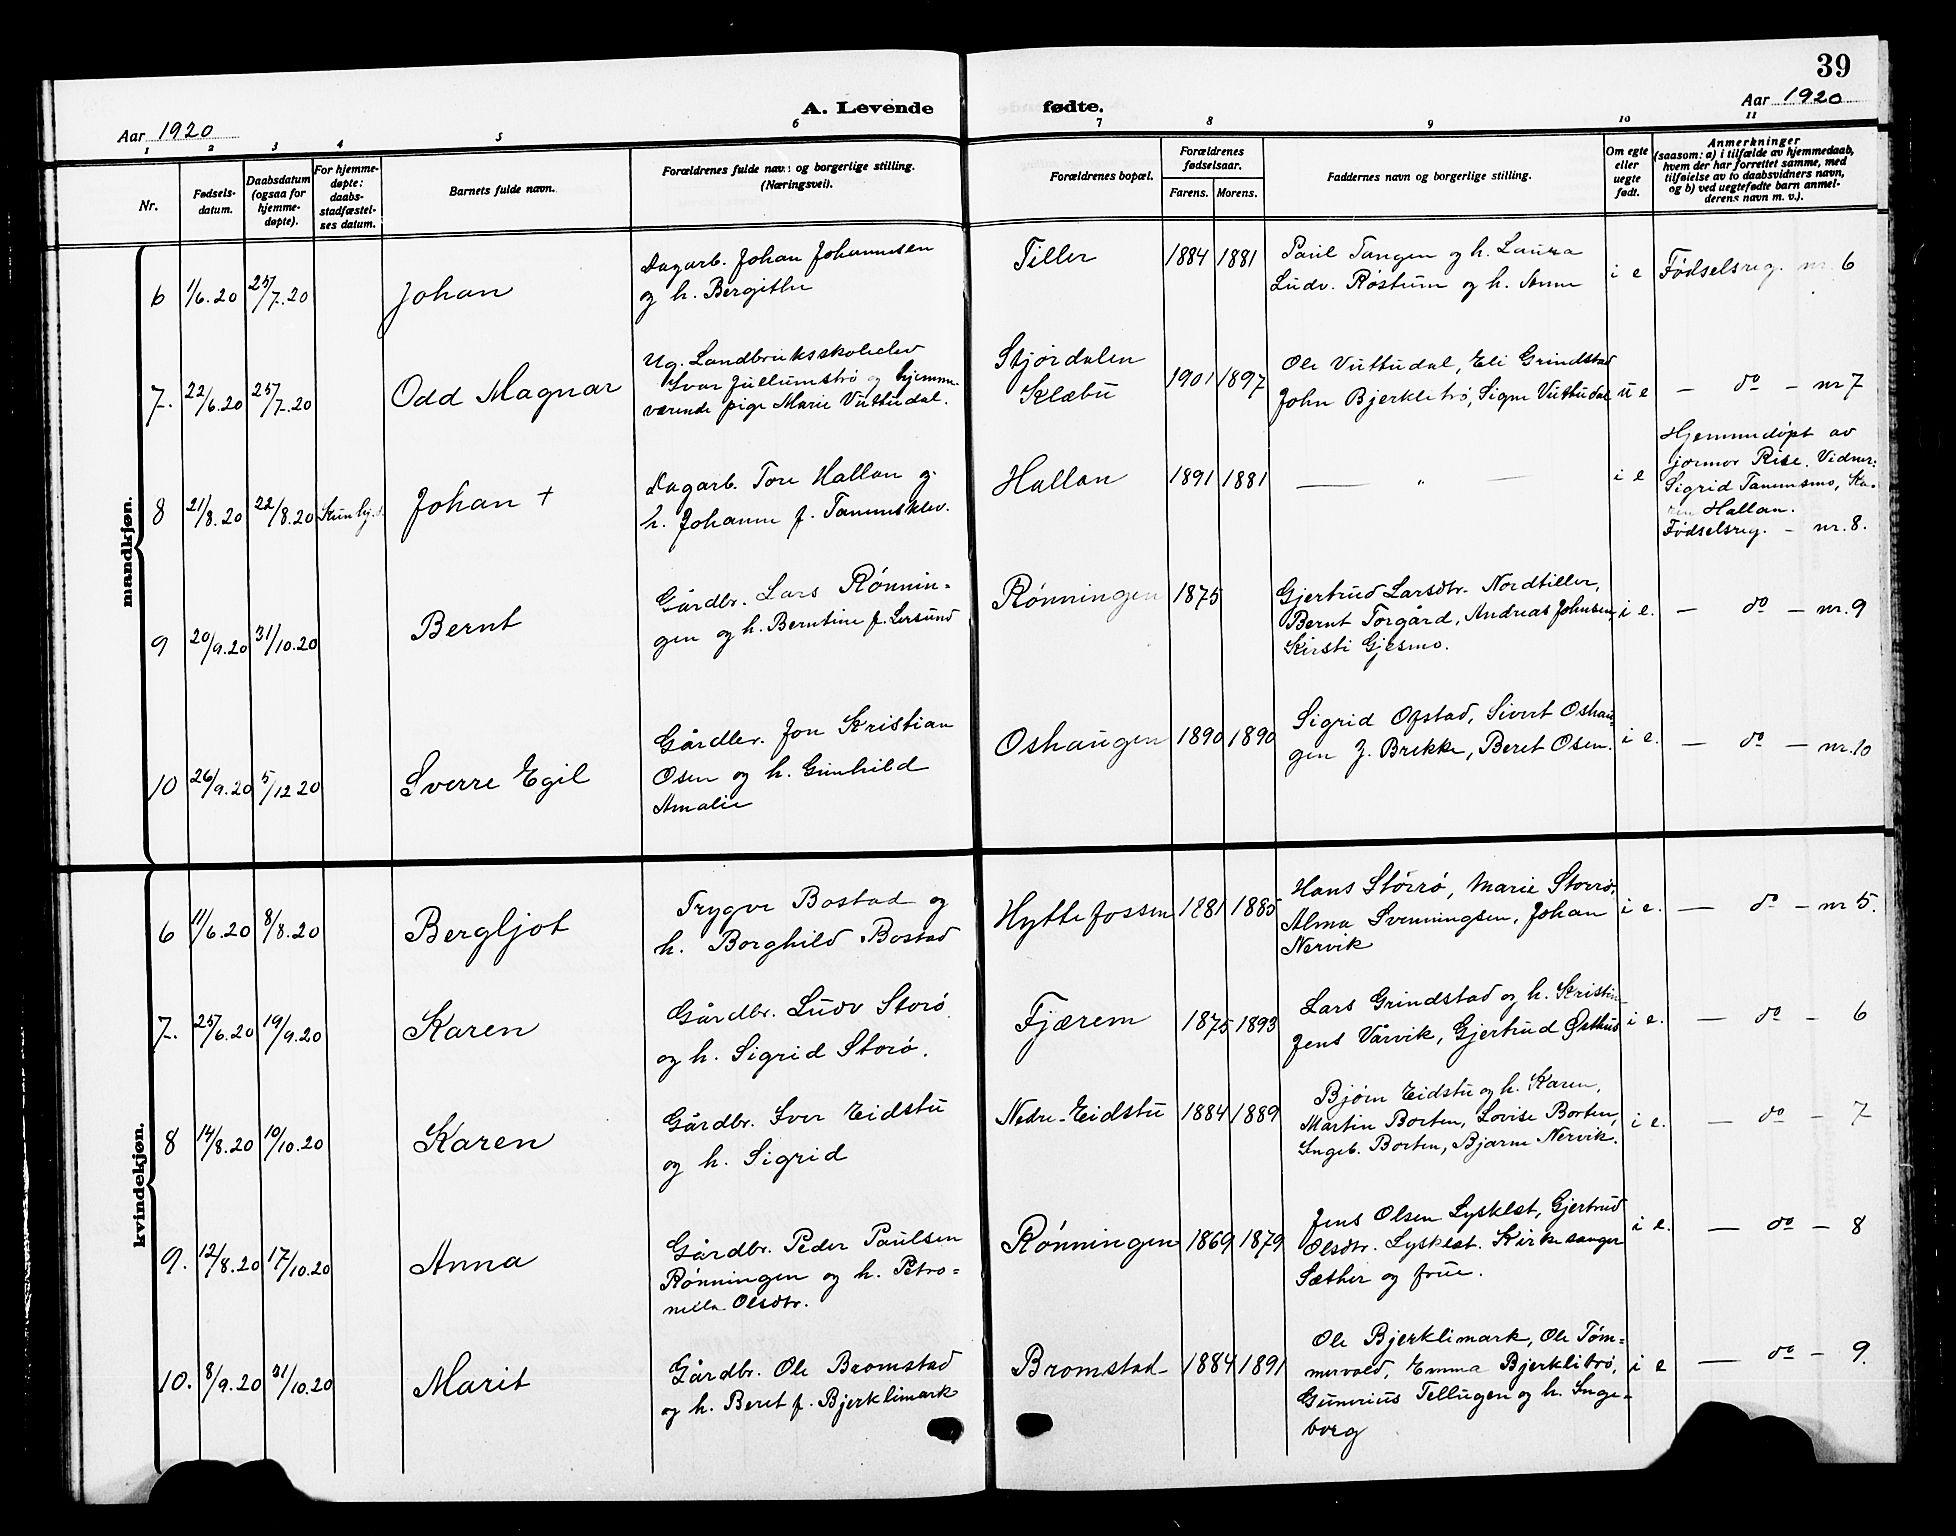 39
A. Levende fødte.
Aar 1920
Aar 1920
1 2 3 4 5 6 7 8 9 10 11
Nr.
Fødsels-
datum.
Daabsdatum
(ogsaa for
hjemme-
døpte).
For hjemme-
døpte:
daabs-
stadfæstel-
ses datum.
Barnets fulde navn.
Forældrenes fulde navn og borgerlige stilling.
(Næringsvei).
Forældrenes bopæl.
Forældrenes
fødselsaar.
Farens. Morens.
Faddernes navn og borgerlige stilling.
Om egte
eller
uegte
født.
Anmerkninger
(saasom: a) i tilfælde av hjemmedaab,
hvem der har forrettet samme, med
tilføielse av to daabsvidners navn,
og b) ved uegtefødte barn anmel-
derens navn m. v.).
mandkjøn.
6 1/6.20 25/7.20 Johan
Dagarb. Johan Johannesen
og h. Bergithe
Tiller 1884 1881
Paul Tangen og h. Laura
Ludv. Røstum og h. Anne
i e Fødselsreg. nr. 6
7. 22/6.20 25/7.20 Odd Magnar
Ug. Landbruksskoleelev
Ivar Jullumstrø og hjemme-
værende pige Marie Vuttudal.
Stjørdalen
Klæbu
1901 1897
Ole Vuttudal, Eli Grindstad
John Bjerklitrø, Signe Vuttudal
u e — do — nr 7
8 21/8.20 22/8.20 Johan +
Dagarb. Tore Hallan og
h. Johanne f. Tanemsklev.
Hallan 1891 1881 — „ —
i e
Hjemmedøpt av
jormor Rise. Vidner:
Sigrid Tanemsmo, Ka-
ren Hallan.
Fødselsreg. - nr. 8.
9 20/9.20 31/10.20 Bernt
Gårdbr. Lars Rønnin-
gen og h. Berntine f. Lersund
Rønningen 1875
Gjertrud Larsdtr. Nordtiller,
Bernt Torgård, Andreas Johnsen,
Kirsti Gjesmo.
i e. — do — nr. 9
10 26/9.20 5/12 20 Sverre Egil
Gårdbr. Jon Kristian
Osen og h. Gunhild
Amalie
Oshaugen 1890 1890
Sigrid Ofstad, Sivert Oshau-
gen J. Brekke, Beret Osen.
i e. — do — nr. 10
kvindekjøn.
6 11/6.20 8/8.20 Bergljot
Trygve Bostad og
h. Borghild Bostad
Hyttefossen 1881 1885
Hans Storrø, Marie Storrø,
Alma Svenningsen, Johan
Nervik
i e. — do — nr 5.
7. 25/6.20 19/9.20 Karen
Gårdbr. Ludv Storø
og h. Sigrid Storø.
Fjærem 1875 1893
Lars Grindstad og h. Kristin-
Jens Vårvik, Gjertrud Østhus
i e. — do — 6
8 14/8.20 10/10.20 Karen
Gårdbr. Iver Eidstu
og h. Sigrid
Nedre-Eidstu 1884 1889
Bjørn Eidstu og h. Karen,
Martin Borten, Lovise Borten,
Ingeb. Borten, Bjarne Nervik.
i e. — do — 7
9. 12/8.20 17/10.20 Anna
Gårdbr. Peder Paulsen
Rønningen og h. Petro-
nella Olsdtr.
Rønningen 1869 1879
Jens Olsen Lysklet, Gjertrud
Olsdtr. Lysklet. Kirkesanger
Sæther og frue.
i e. — do — 8
10. 8/9.20 31/10.20 Marit
Gårdbr. Ole Bromstad
og h. Beret f. Bjerklimark
Bromstad 1884 1891
Ole Bjerklimark, Ole Tøm-
mervold, Emma Bjerklitrø,
Gunerius Tellugen og h. Inge-
borg
i e — do — 9.